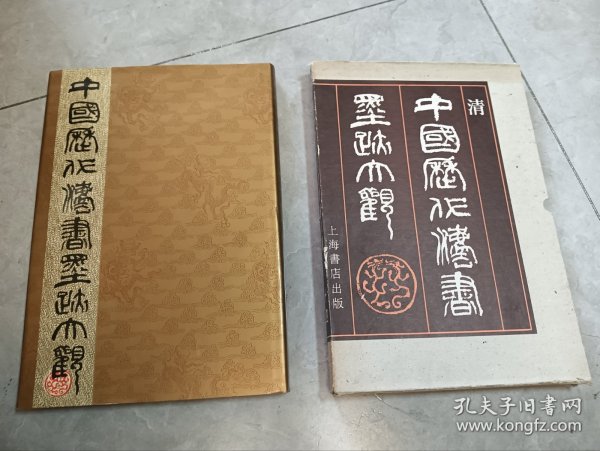 中國歷代法書墨迹大觀
清
中國歷代法書
墨迹大觀
上海書店出版
孔夫子旧书网
www.kongfz.com